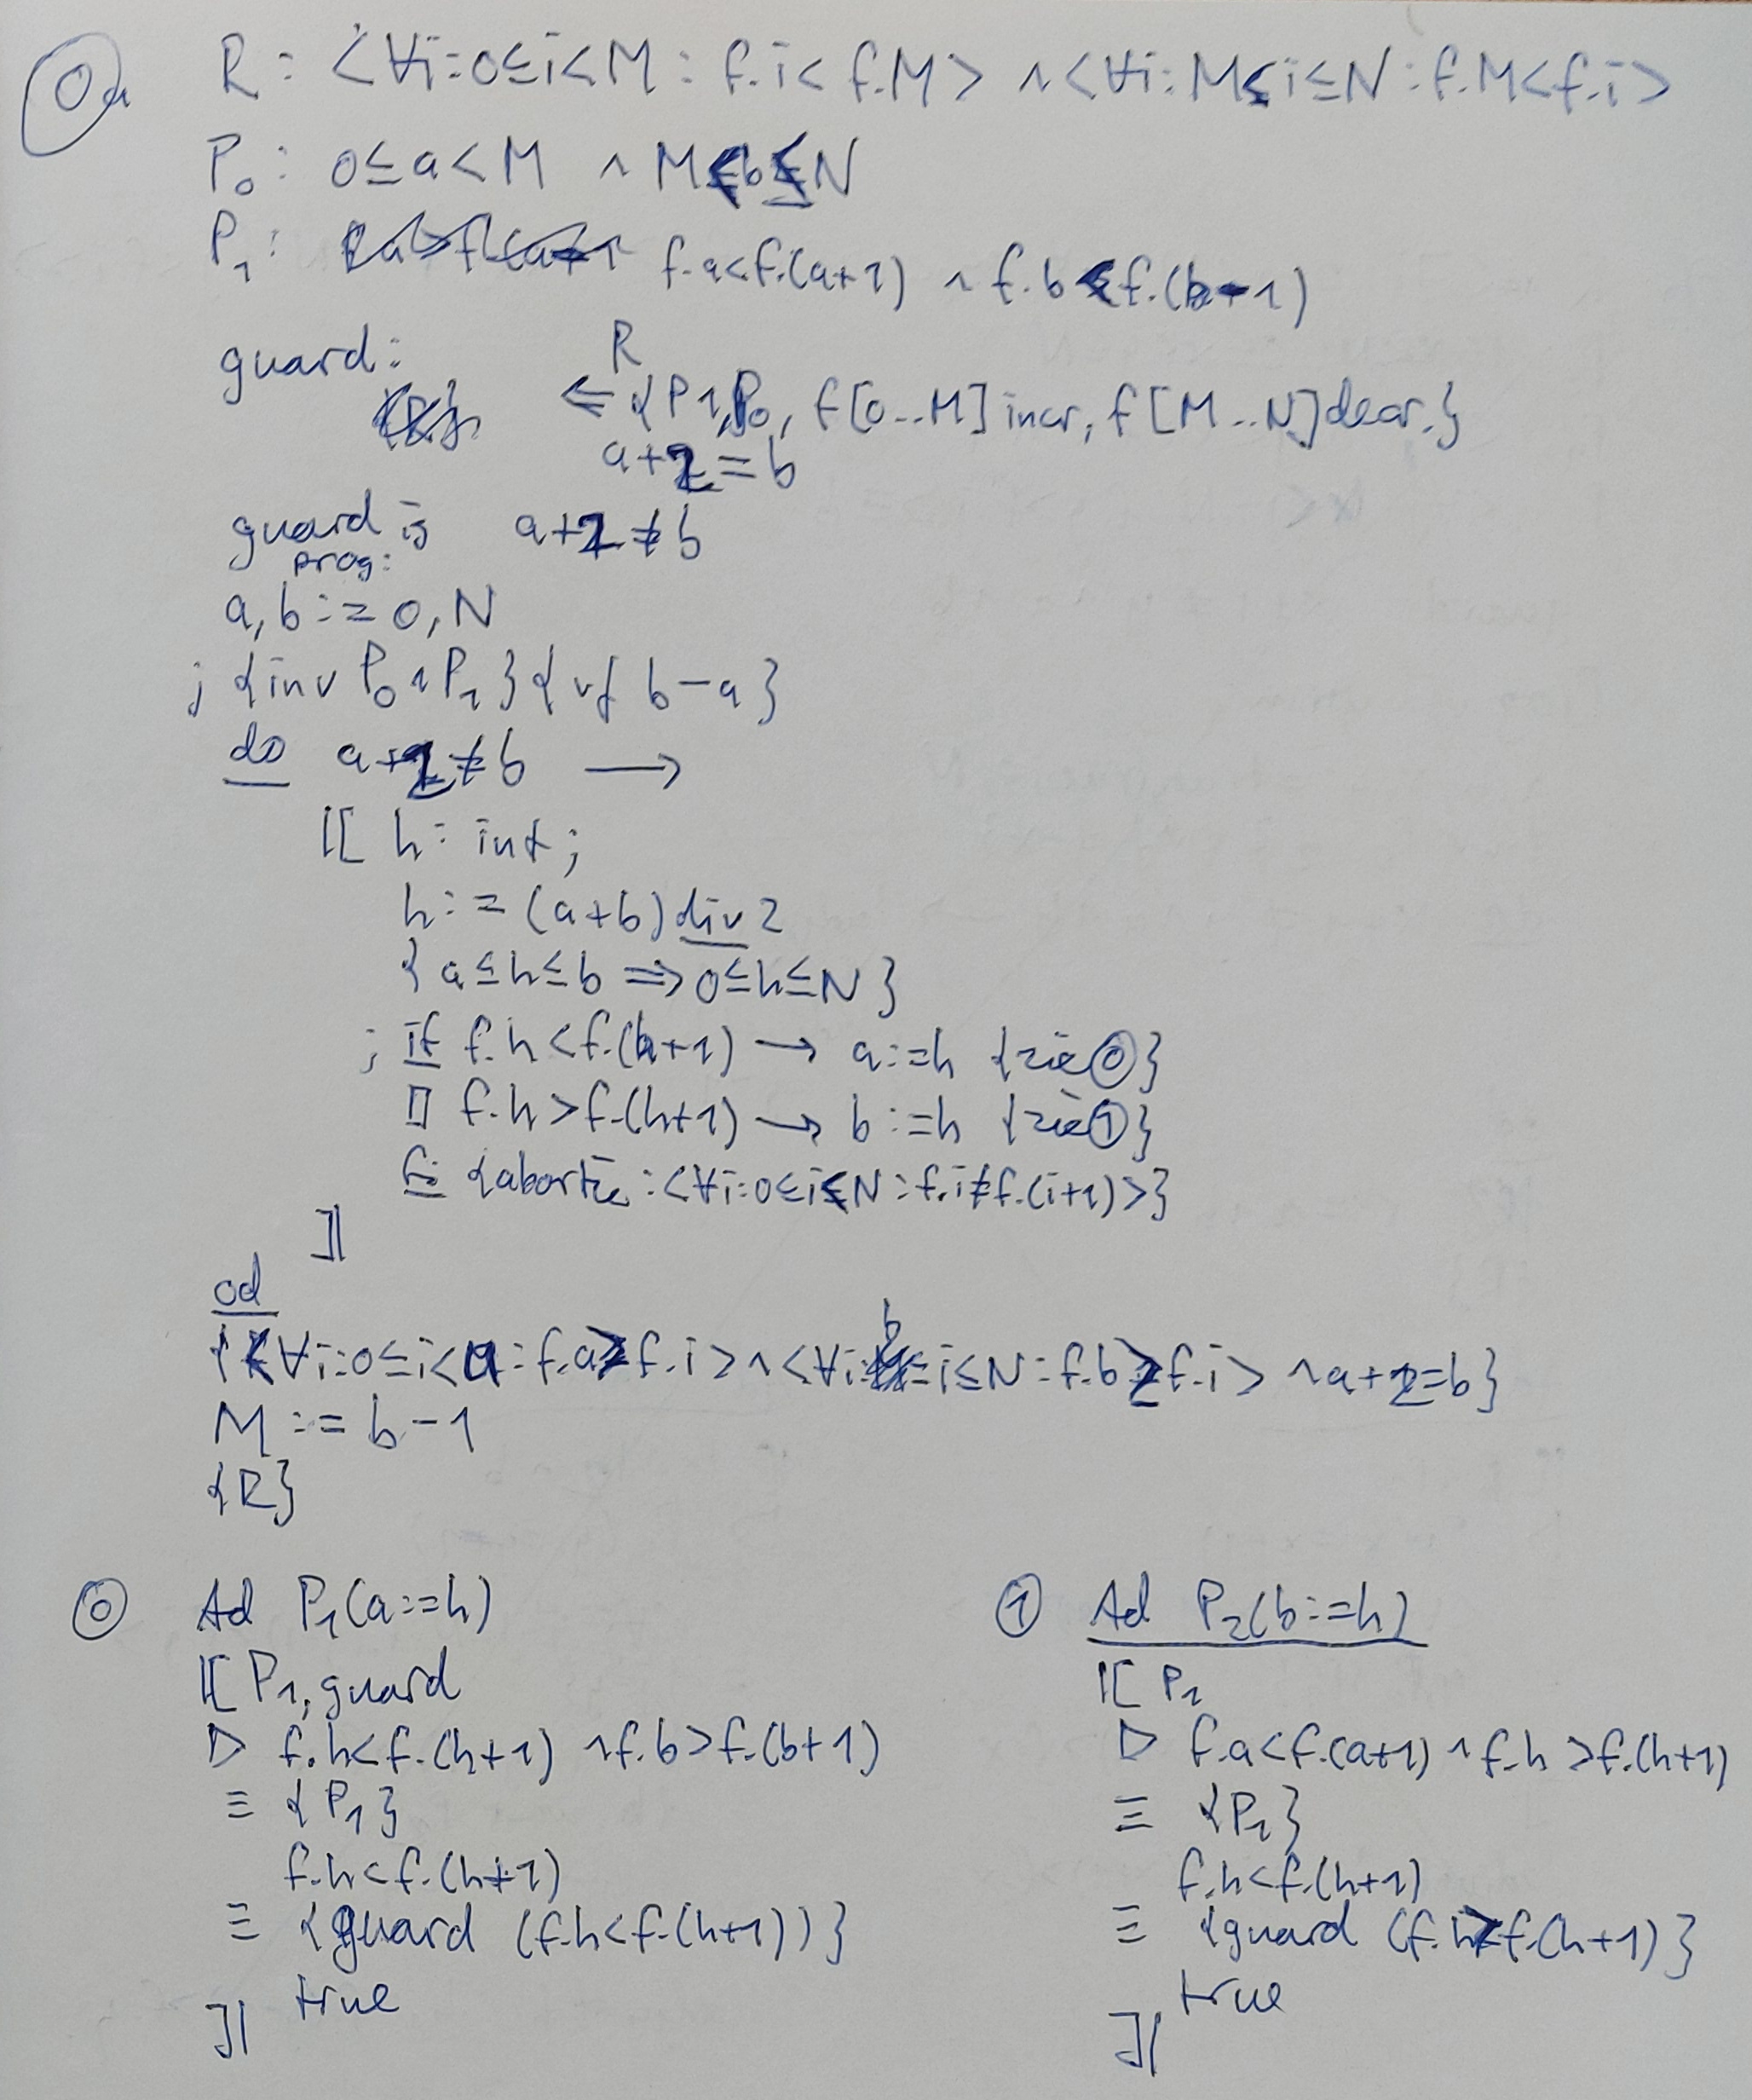 0a R: <∀i:0≤i<M : f.i < f.M> ∧ <∀i: M<i≤N : f.M<f.i>
P₀: 0≤a<M ∧ M<b≤N
P₁: f.a<f.(a+1) ∧ f.b<f.(b-1)
guard: R
⇐ {P1, P₀, f[0..M] incr, f[M..N] decr.}
a+2=b
guard is a+2≠b
prog:
a,b := 0,N
; {inv P₀∧P₁}{vf b-a}
do a+2≠b →
|[ h: int;
h:= (a+b) div 2
{a≤h≤b ⇒ 0≤h≤N}
; if f.h<f.(h+1) → a:=h {zie ⓪}
▯ f.h>f.(h+1) → b:=h {zie ①}
fi {abortie: <∀i:0≤i<N : f.i≠f.(i+1)>}
]|
od
{<∀i:0≤i<a : f.a>f.i> ∧ <∀i:b≤i≤N : f.b≥f.i> ∧ a+2=b}
M := b-1
{R}
⓪ Ad P₁(a:=h) ① Ad P₂(b:=h)
|[ P₁, guard |[ P₁
▷ f.h<f.(h+1) ∧ f.b>f.(b+1) ▷ f.a<f.(a+1) ∧ f.h>f.(h+1)
≡ {P₁} ≡ {P₁}
f.h<f.(h+1) f.h<f.(h+1)
≡ {guard (f.h<f.(h+1))} ≡ {guard (f.h>f.(h+1)}
true true
]| ]|